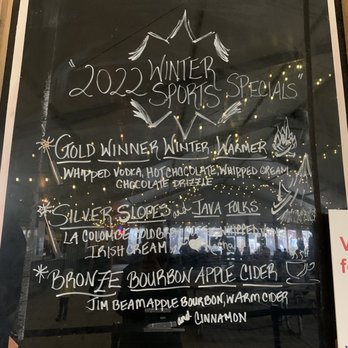 "2022 WINTER
SPORTS SPECIALS"
GOLD WINNER WINTER WARMER
WHIPPED VODKA, HOT CHOCOLATE, WHIPPED CREAM
CHOCOLATE DRIZZLE
SILVER SLOPES and JAVA FOLKS
LA COLOMBE COLD WHIPPED
IRISH CREAM
BRONZE BOURBON APPLE CIDER
JIM BEAM APPLE BOURBON, WARM CIDER
and CINNAMON